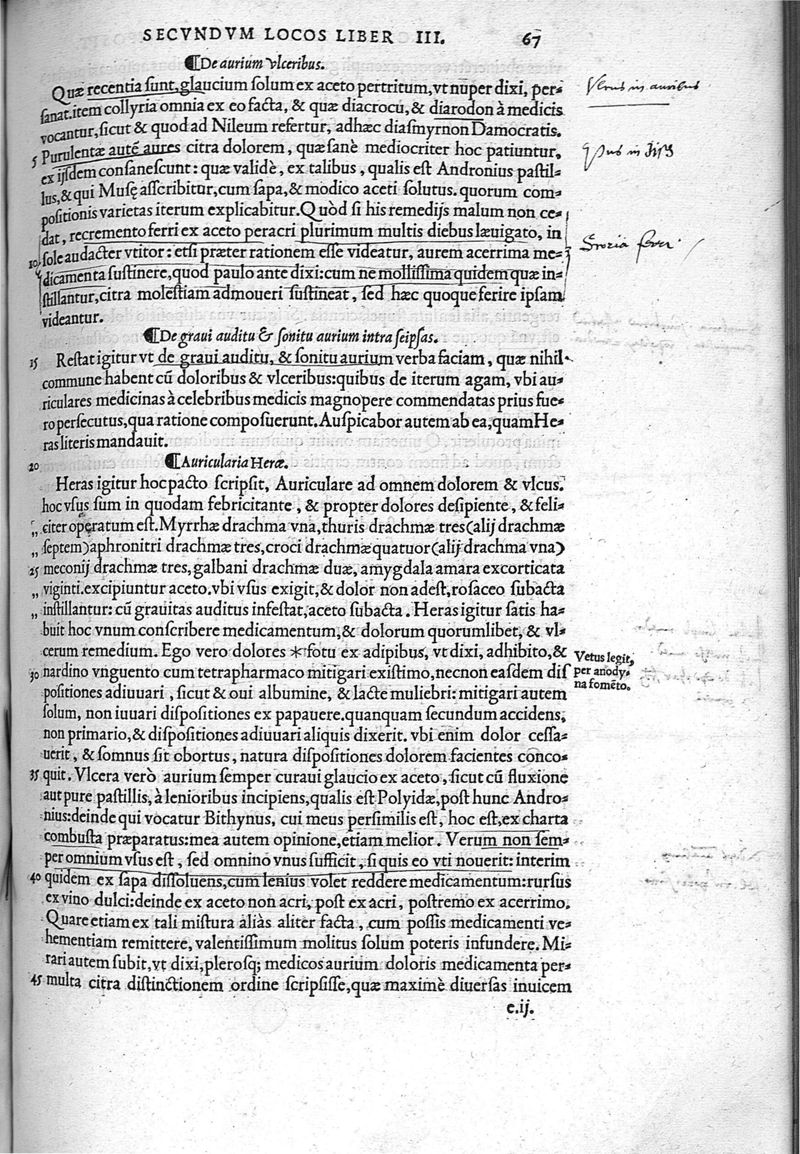 SECVNDVM LOCOS LIBER III. 67
¶De aurium vlceribus.
Quæ recentia ſunt, glaucium ſolum ex aceto pertritum, vt nuper dixi, per-
ſanat. item collyria omnia ex eo facta, & quæ diacrocu, & diarodon à medicis
vocantur, ſicut & quod ad Nileum refertur, adhæc diaſmyrnon Damocratis.
5 Purulentæ autē aures citra dolorem, quæ ſanè mediocriter hoc patiuntur,
ex ijſdem conſaneſcunt: quæ validè, ex talibus, qualis eſt Andronius paſtil-
lus, & qui Muſę aſſcribitur, cum ſapa, & modico aceti ſolutus. quorum com-
poſitionis varietas iterum explicabitur. Quòd ſi his remedijs malum non ce-
dat, recremento ferri ex aceto peracri plurimum multis diebus læuigato, in
10 ſole audacter vtitor: etſi præter rationem eſſe videatur, aurem acerrima me-
dicamenta ſuſtinere, quod paulo ante dixi: cum ne molliſſima quidem quæ in-
ſtillantur, citra moleſtiam admoueri ſuſtineat, ſed hæc quoque ferire ipſam
videantur.
¶De graui auditu & ſonitu aurium intra ſeipſas.
15 Reſtat igitur vt de graui auditu, & ſonitu aurium verba faciam, quæ nihil
commune habent cū doloribus & vlceribus: quibus de iterum agam, vbi au-
riculares medicinas à celebribus medicis magnopere commendatas prius fue-
ro perſecutus, qua ratione compoſuerunt. Auſpicabor autem ab ea, quam He-
ras literis mandauit.
20 ¶Auricularia Heræ.
Heras igitur hoc pacto ſcripſit, Auriculare ad omnem dolorem & vlcus.
hoc vſus ſum in quodam febricitante, & propter dolores deſipiente, & feli-
„ citer operatum eſt. Myrrhæ drachma vna, thuris drachmæ tres (alij drachmæ
„ ſeptem) aphronitri drachmæ tres, croci drachmæ quatuor (alij drachma vna)
25 meconij drachmæ tres, galbani drachmæ duæ, amygdala amara excorticata
„ viginti. excipiuntur aceto. vbi vſus exigit, & dolor non adeſt, roſaceo ſubacta
„ inſtillantur: cū grauitas auditus infeſtat, aceto ſubacta. Heras igitur ſatis ha-
buit hoc vnum conſcribere medicamentum, & dolorum quorumlibet, & vl-
cerum remedium. Ego vero dolores * fotu ex adipibus, vt dixi, adhibito, &
30 nardino vnguento cum tetrapharmaco mitigari exiſtimo, necnon eaſdem diſ
poſitiones adiuuari, ſicut & oui albumine, & lacte muliebri: mitigari autem
ſolum, non iuuari diſpoſitiones ex papauere. quanquam ſecundum accidens,
non primario, & diſpoſitiones adiuuari aliquis dixerit. vbi enim dolor ceſſa-
uerit, & ſomnus ſit obortus, natura diſpoſitiones dolorem facientes conco-
35 quit. Vlcera verò aurium ſemper curaui glaucio ex aceto, ſicut cū fluxione
aut pure paſtillis, à lenioribus incipiens, qualis eſt Polyidæ, poſt hunc Andro-
nius: deinde qui vocatur Bithynus, cui meus perſimilis eſt, hoc eſt, ex charta
combuſta præparatus: mea autem opinione, etiam melior. Verum non ſem-
per omnium vſus eſt, ſed omnino vnus ſufficit, ſi quis eo vti nouerit: interim
40 quidem ex ſapa diſſoluens, cum lenius volet reddere medicamentum: rurſus
ex vino dulci: deinde ex aceto non acri, poſt ex acri, poſtremo ex acerrimo.
Quare etiam ex tali miſtura aliàs aliter facta, cum poſſis medicamenti ve-
hementiam remittere, valentiſſimum molitus ſolum poteris infundere. Mi-
rari autem ſubit, vt dixi, pleroſq; medicos aurium doloris medicamenta per-
45 multa citra diſtinctionem ordine ſcripſiſſe, quæ maximè diuerſas inuicem
e.ij.
in auribus
Vetus legit,
per anody-
na fomēto.